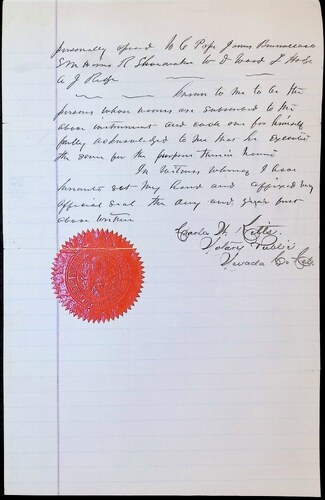 personally appeared W C Pope James
S M Harris R Shoemaker W D Wood L
A J
known to me to be the
persons whose names are subscribed to the
above instrument and each one for himself
acknowledged to me that he executed
the same for the purposes therein named
In Witness whereof I have
hereunto set my hand and affixed my
official seal the day and year first
above written
Charles W. Kitts
Notary Public
Nevada Co. Cal.